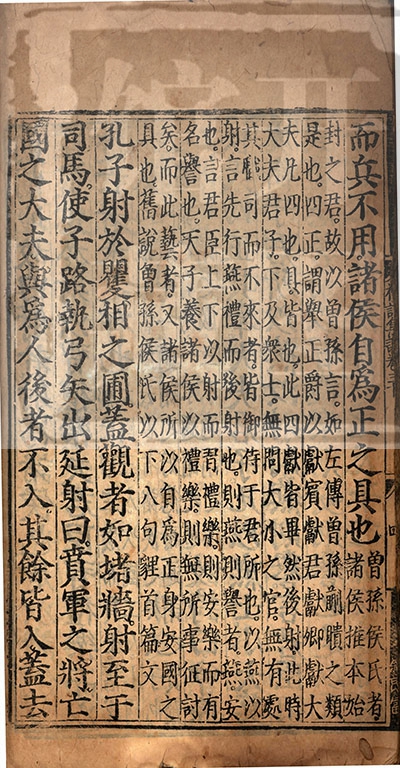 而兵不用諸侯自爲正之具也
曾孫侯氏者
諸侯推本始
封之君故以曾孫言如左傳曾孫蒯聵之類
是也四正謂舉正爵以獻賓獻君獻卿獻大
夫凡四也具皆也此四獻皆畢然後射此時
大夫君子下及衆士無問大小之官無有處
其職司而不來者皆御侍于君所也以燕以
射言先行燕禮而後射也則燕則譽者燕安
也言君臣上下以射而習禮樂則安樂而有
名譽也天子養諸侯以禮樂則無所事征討
矣而此藝者又諸侯所以自爲正身安國之
具也舊說曾孫侯氏以下八句貍首篇文
孔子射於矍相之圃蓋觀者如堵牆射至于
司馬使子路執弓矢出延射曰賁軍之將亡
國之大夫與爲人後者不入其餘皆入蓋去